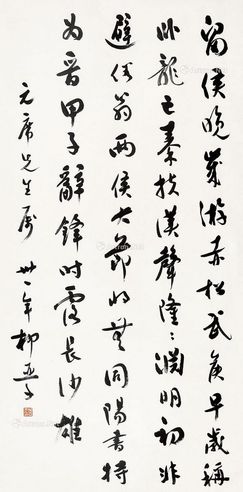 留侯晚歲游赤松武侯早歲稱
卧龍亡秦扶漢聲隆隆淵明初非
避俗翁兩侯大節將無同陽書特
为晋甲子辭鋒時露長沙雄
元席先生屬 卅一年 柳亞子